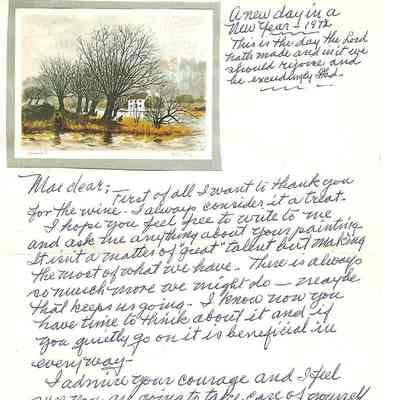 A new day in a
New Year - 1972
This is the day the Lord
hath made and in it we
should rejoice and
be exceedingly glad.
Mae dear;
First of all I want to thank you
for the wine. I always consider it a treat.
I hope you feel free to write to me
and ask me anything about your painting
It isn't a matter of "great" talent but making
the most of what we have. There is always
so much more we might do — maybe
that keeps us going. I know now you
have time to think about it and if
you quietly go on it is beneficial in
every way.
I admire your courage and I feel
sure you are going to take care of yourself